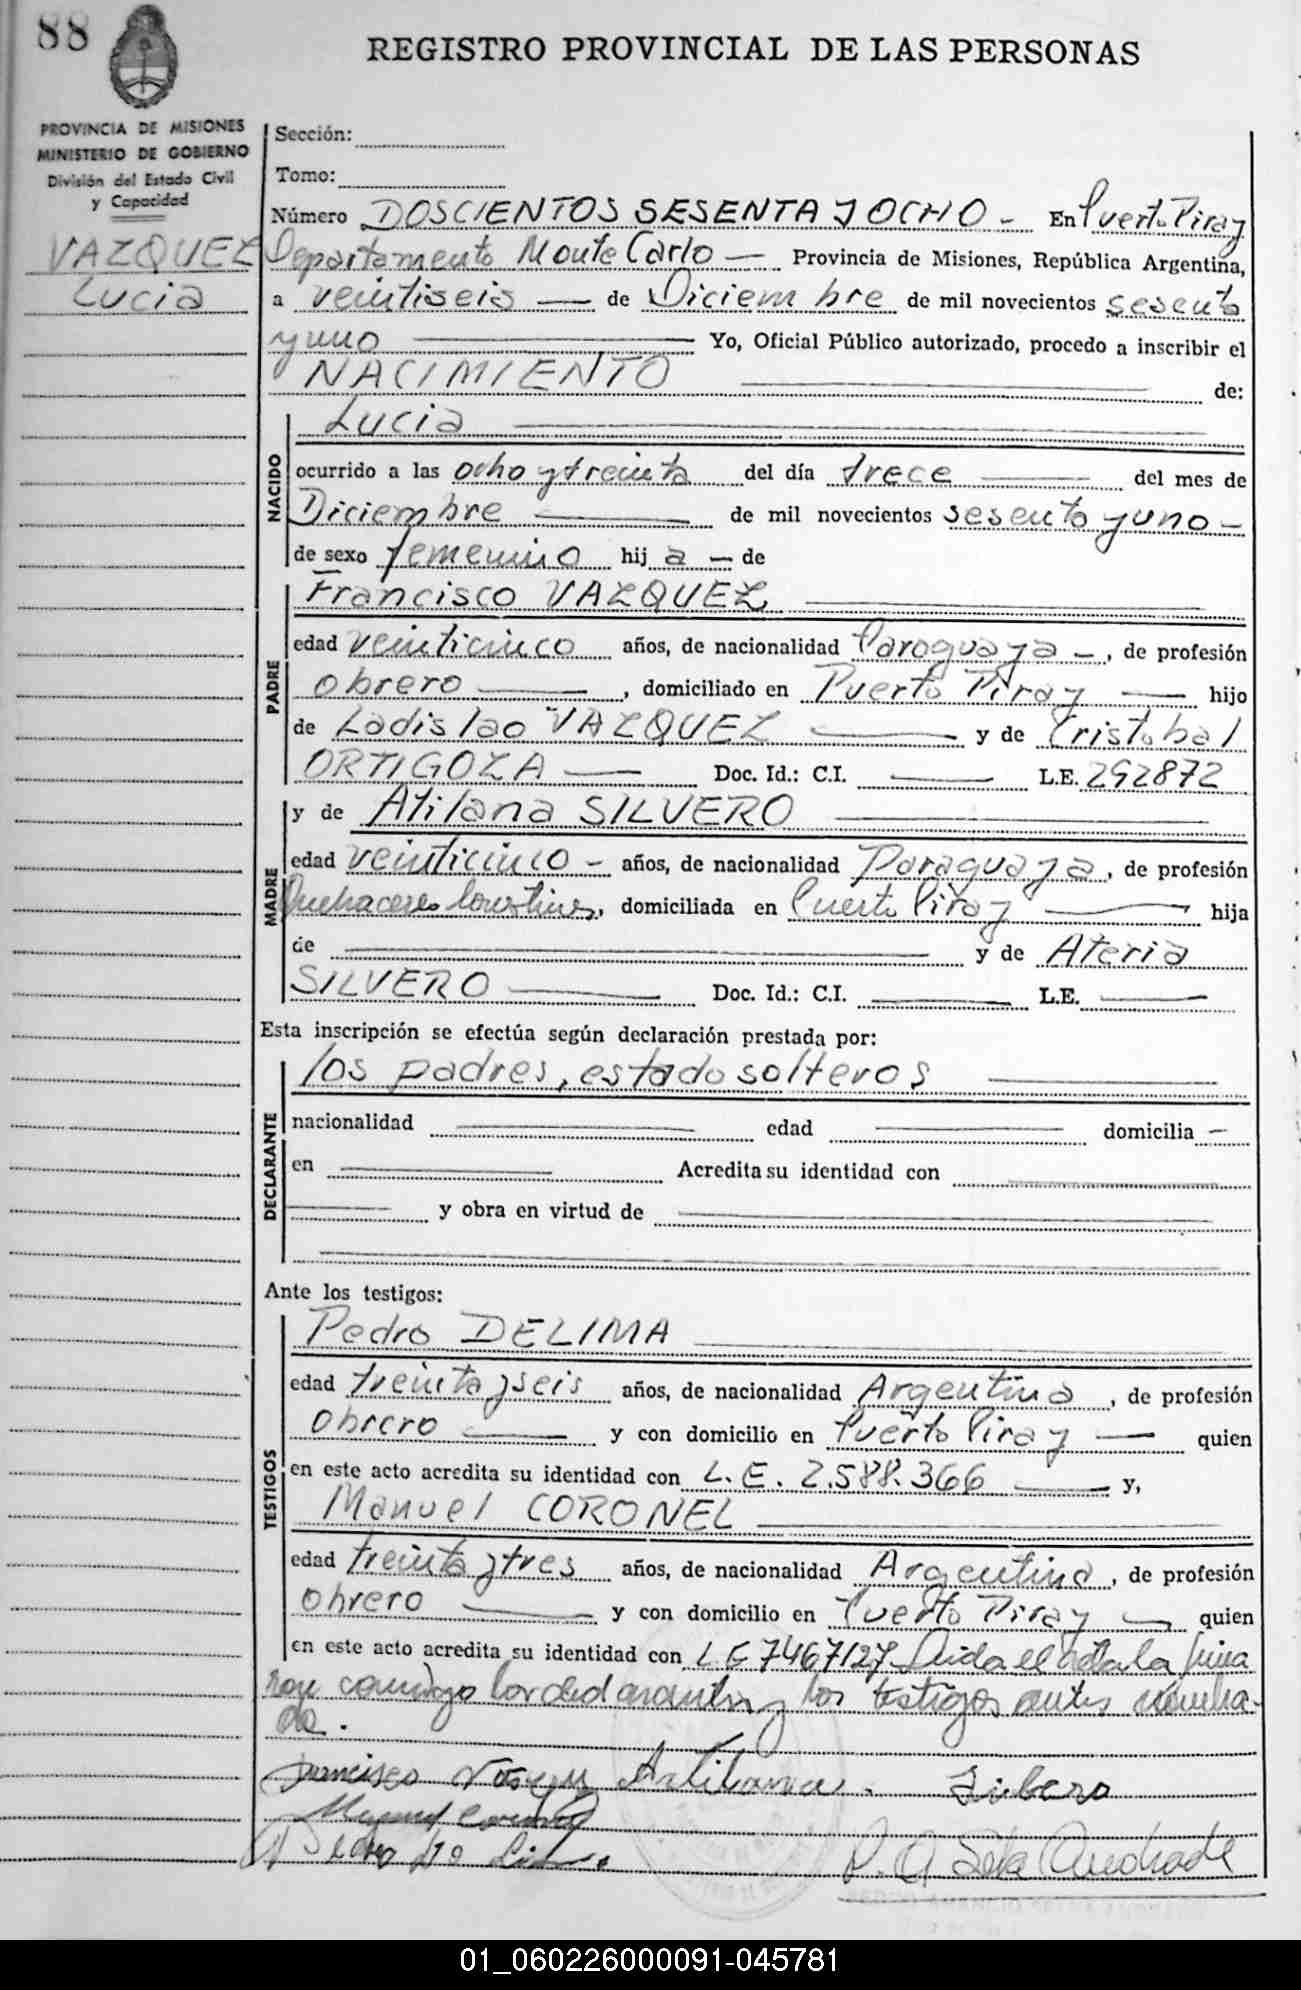 88
REGISTRO PROVINCIAL DE LAS PERSONAS
PROVINCIA DE MISIONES
MINISTERIO DE GOBIERNO
División del Estado Civil
y Capacidad
VAZQUEZ
Lucia
Sección:
Tomo:
Número DOSCIENTOS SESENTA Y OCHO - En Puerto Piray
Departamento Monte Carlo — Provincia de Misiones, República Argentina,
a veintiseis — de Diciembre de mil novecientos sesenta
y uno — Yo, Oficial Público autorizado, procedo a inscribir el
NACIMIENTO — de:
NACIDO
Lucia —
ocurrido a las ocho y treinta del día trece — del mes de
Diciembre — de mil novecientos sesenta y uno -
de sexo femenino hij a - de
PADRE
Francisco VAZQUEZ —
edad veinticinco años, de nacionalidad Paraguaya -, de profesión
obrero —, domiciliado en Puerto Piray — hijo
de Ladislao VAZQUEZ — y de Cristobal
ORTIGOZA — Doc. Id.: C.I. — L.E. 292872
MADRE
y de Atilana SILVERO —
edad veinticinco - años, de nacionalidad Paraguaya, de profesión
Quehaceres domesticos, domiciliada en Puerto Piray — hija
de — y de Ateria
SILVERO — Doc. Id.: C.I. — L.E. —
Esta inscripción se efectúa según declaración prestada por:
DECLARANTE
los padres, estado solteros —
nacionalidad — edad — domicilia —
en — Acredita su identidad con —
— y obra en virtud de —
Ante los testigos:
TESTIGOS
Pedro DELIMA —
edad treinta y seis años, de nacionalidad Argentina, de profesión
obrero — y con domicilio en Puerto Piray — quien
en este acto acredita su identidad con L.E. 2.588.366 — y,
Manuel CORONEL —
edad treinta y tres años, de nacionalidad Argentina, de profesión
obrero — y con domicilio en Puerto Piray — quien
en este acto acredita su identidad con L E 7467127 Leida el acta la firma
ron conmigo los declarantes y los testigos antes nombra-
dos.
Francisco Vasquez Atilana Silbero
Manuel Coronel
Pedro de Lima
01_060226000091-045781